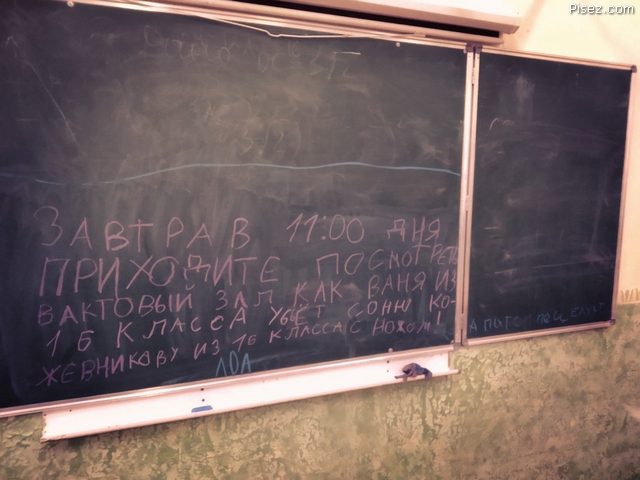 Pisez.com
ЗАВТРА В 11:00 ДНЯ
ПРИХОДИТЕ ПОСМОТРЕТЬ
ВАКТОВЫЙ ЗАЛ КАК ВАНЯ ИЗ
1 Б КЛАССА УБЕТ СОНЮ КО-
ЖЕВНИКОВУ ИЗ 1б КЛАССА С НОЖОМ!